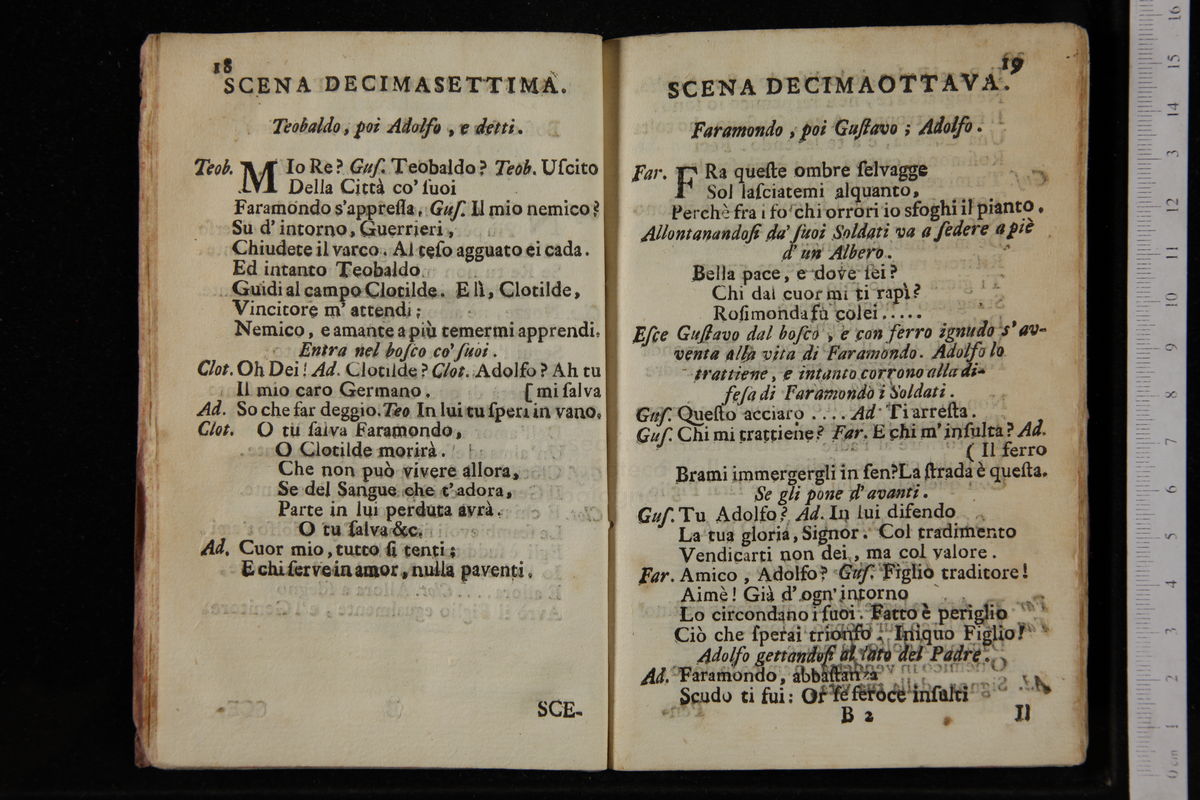 18
SCENA DECIMASETTIMA.
Teobaldo, poi Adolfo, e detti.
Teob. MIo Re? Guſ. Teobaldo? Teob. Uſcito
Della Città co' ſuoi
Faramondo s'appreſſa. Guſ. Il mio nemico?
Su d'intorno, Guerrieri,
Chiudete il varco. Al teſo agguato ei cada.
Ed intanto Teobaldo
Guidi al campo Clotilde. E lì, Clotilde,
Vincitore m'attendi;
Nemico, e amante a più temermi apprendi.
Entra nel boſco co' ſuoi.
Clot. Oh Dei! Ad. Clotilde? Clot. Adolfo? Ah tu
Il mio caro Germano. [mi ſalva
Ad. So che far deggio. Teo In lui tu ſperi in vano.
Clot. O tu ſalva Faramondo,
O Clotilde morirà.
Che non può vivere allora,
Se del Sangue che t'adora,
Parte in lui perduta avrà.
O tu ſalva &c.
Ad. Cuor mio, tutto ſi tenti;
E chi ſerve in amor, nulla paventi.
SCE-
19
SCENA DECIMAOTTAVA.
Faramondo, poi Guſtavo; Adolfo.
Far. FRa queſte ombre ſelvagge
Sol laſciatemi alquanto,
Perchè fra i fo chi orrori io sfoghi il pianto.
Allontanandoſi da' ſuoi Soldati va a ſedere a piè
d'un Albero.
Bella pace, e dove ſei?
Chi dal cuor mi ti rapì?
Roſimonda fu colei.....
Eſce Guſtavo dal boſco, e con ferro ignudo s'av-
venta alla vita di Faramondo. Adolfo lo
trattiene, e intanto corrono alla di-
feſa di Faramondo i Soldati.
Guſ. Queſto acciaro .... Ad Ti arreſta.
Guſ. Chi mi trattiene? Far. E chi m'inſulta? Ad.
(Il ferro
Brami immergergli in ſen? La ſtrada è queſta.
Se gli pone d'avanti.
Guſ. Tu Adolfo? Ad. In lui difendo
La tua gloria, Signor. Col tradimento
Vendicarti non dei, ma col valore.
Far. Amico, Adolfo? Guſ. Figlio traditore!
Aimè! Già d'ogn'intorno
Lo circondano i ſuoi. Fatto è periglio
Ciò che ſperai trionfo. Iniquo Figlio!
Adolfo gettandoſi al lato del Padre.
Ad. Faramondo, abbaſtanza
Scudo ti fui: Or ſe feroce inſulti
B 2
Il